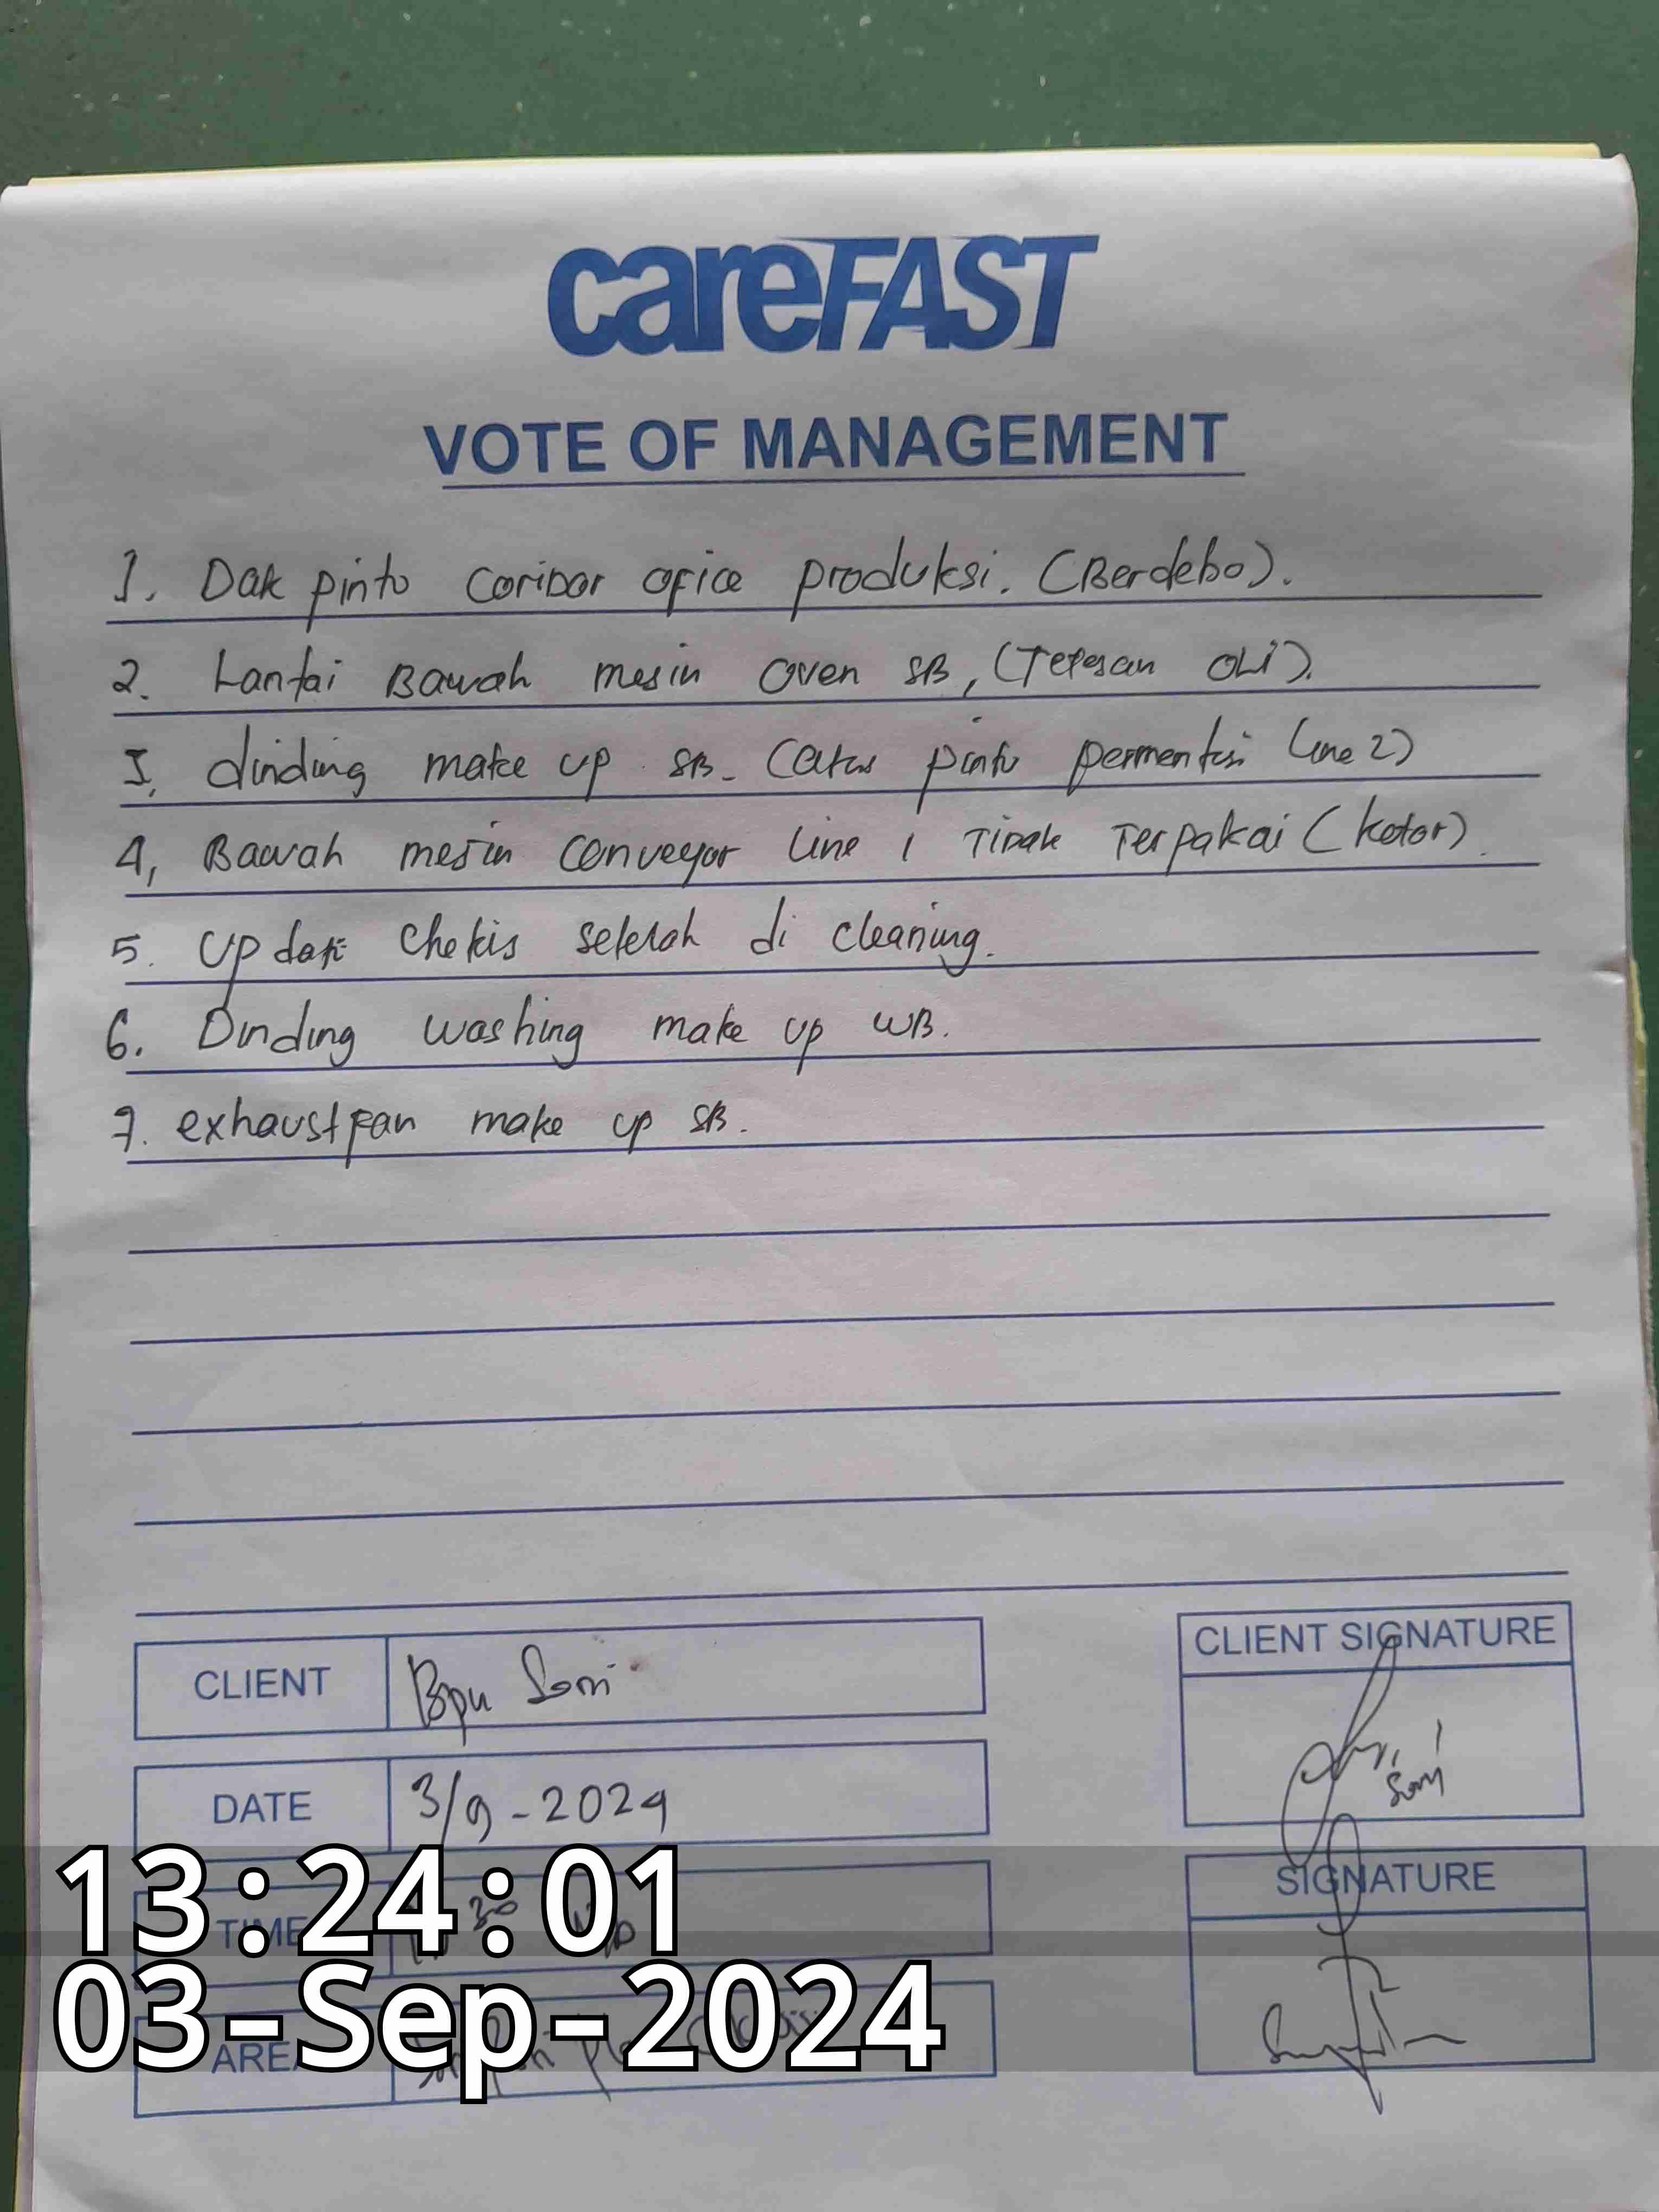 careFAST
VOTE OF MANAGEMENT
1. Dak pinto coridor ofice produksi. (Berdebo).
2. Lantai Bawah mesin oven SB, (Tetesan oli).
3. dinding make up SB. (atas pinto permentisi Line 2)
4, Bawah mesin conveyor Line 1 Tidak Terpakai (kotor).
5. Update cheklis setelah di cleaning.
6. Dinding washing make up WB.
7. exhaustfan make up SB.
CLIENT SIGNATURE
CLIENT Bpk Soni
Soni
DATE 3/9-2024
SIGNATURE
13:24:01
TIME 30
03-Sep-2024
AREA